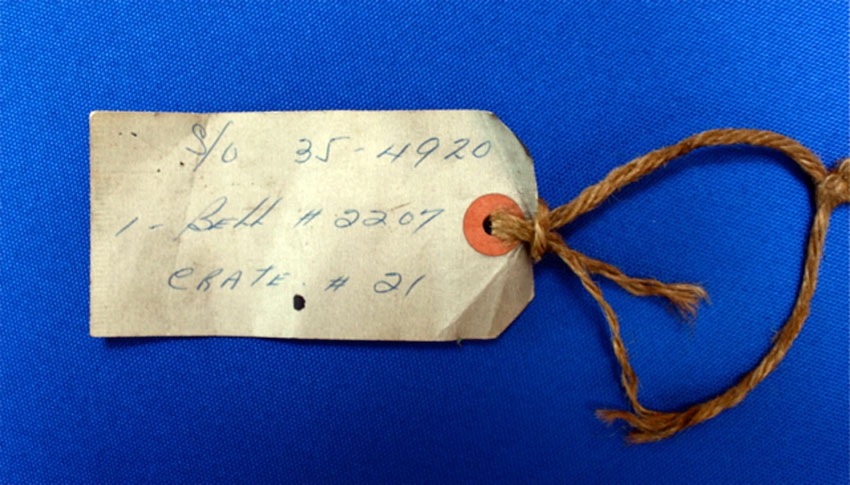 S/O 35-4920
1- Bell # 2207
CRATE # 21